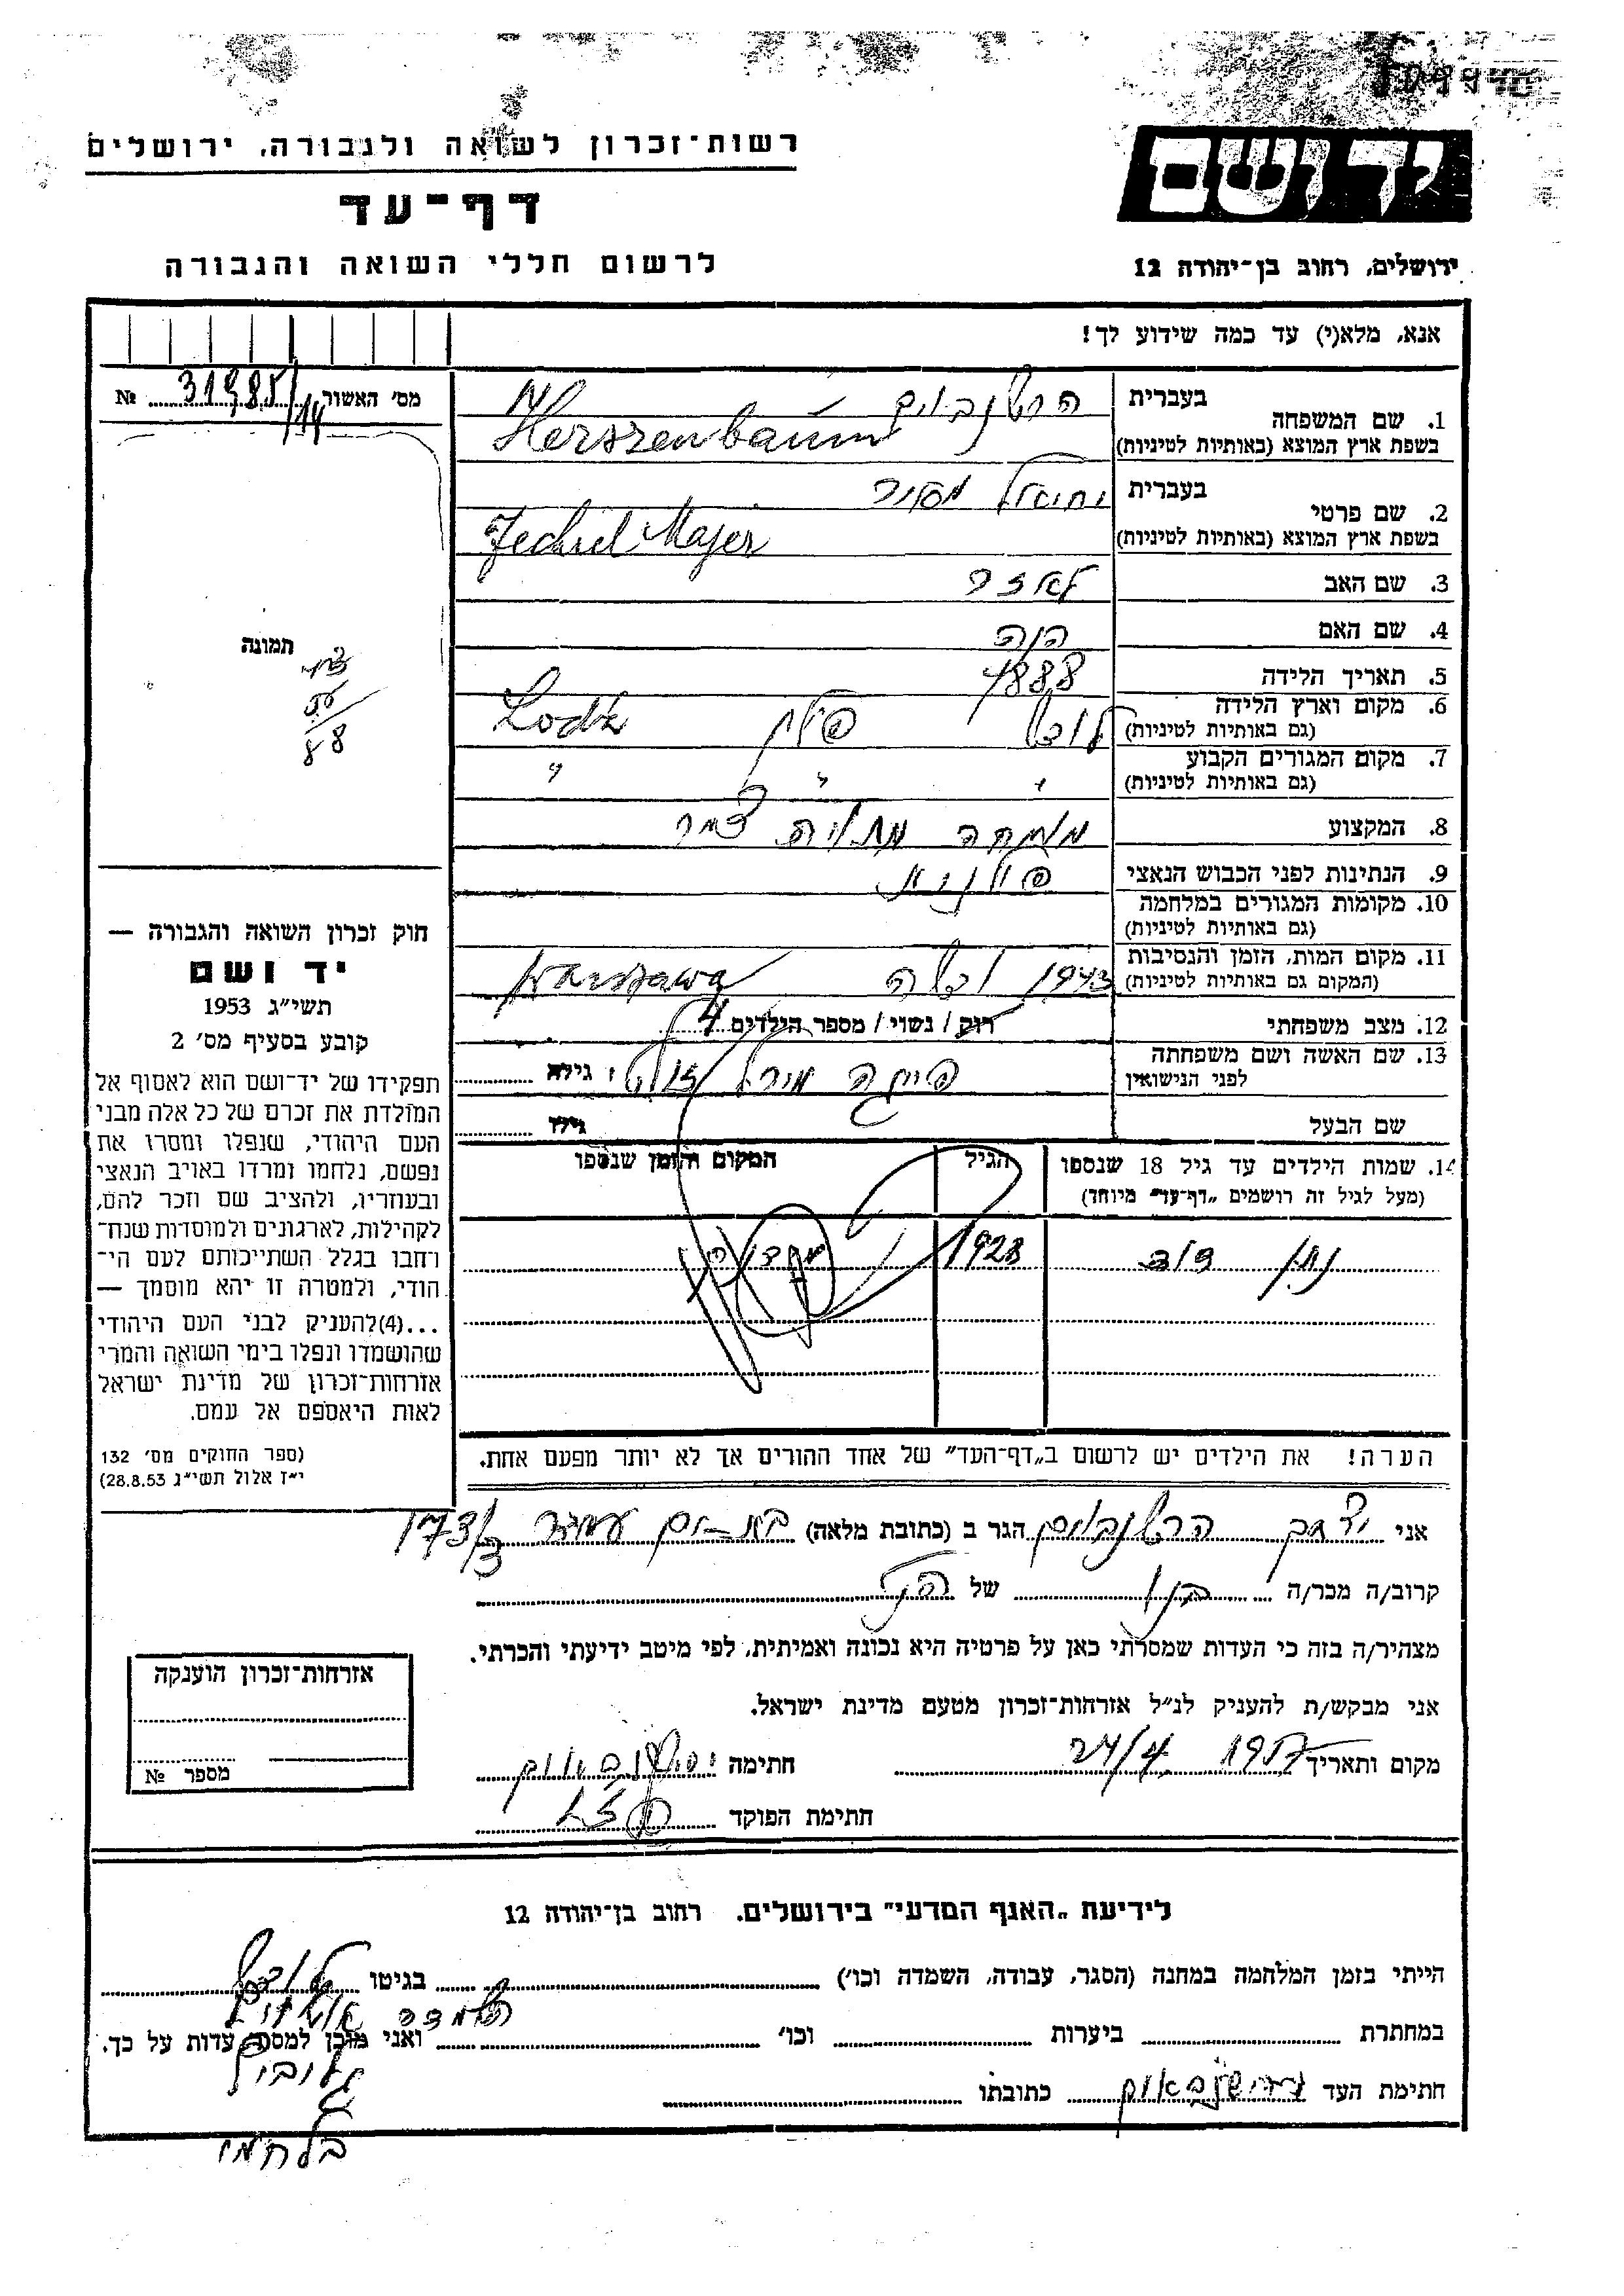 יד ושם
ירושלים, רחוב בן־יהודה 12
רשות־זכרון לשואה ולגבורה, ירושלים
דף־עד
לרשום חללי השואה והגבורה
אנא, מלא(י) עד כמה שידוע לך!
מס' האשור № 31985/14
תמונה
43
88
חוק זכרון השואה והגבורה —
יד ושם
תשי"ג 1953
קובע בסעיף מס' 2
תפקידו של יד־ושם הוא לאסוף אל
המולדת את זכרם של כל אלה מבני
העם היהודי, שנפלו ומסרו את
נפשם, נלחמו ומרדו באויב הנאצי
ובעוזריו, ולהציב שם וזכר להם,
לקהילות, לארגונים ולמוסדות שנח־
רחבו בגלל השתייכותם לעם הי־
הודי, ולמטרה זו יהא מוסמך —
...(4)להעניק לבני העם היהודי
שהושמדו ונפלו בימי השואה והמרי
אזרחות־זכרון של מדינת ישראל
לאות היאספם אל עמם.
(ספר החוקים מס' 132
י"ז אלול תשי"ג 28.8.53)
1. שם המשפחה בעברית הרשנבוים
בשפת ארץ המוצא (באותיות לטיניות) Herszenbaum
2. שם פרטי בעברית יחיאל מאיר
בשפת ארץ המוצא (באותיות לטיניות) Jechiel Majer
3. שם האב לאזר
4. שם האם חנה
5. תאריך הלידה 1888
6. מקום וארץ הלידה לודז' פולין Lodz
(גם באותיות לטיניות)
7. מקום המגורים הקבוע " " "
(גם באותיות לטיניות)
8. המקצוע מומחה צמר
9. הנתינות לפני הכבוש הנאצי פולנית
10. מקומות המגורים במלחמה
(גם באותיות לטיניות)
11. מקום המות, הזמן והנסיבות 1943 Warszawa
(המקום גם באותיות לטיניות)
12. מצב משפחתי רוק / נשוי / מספר הילדים 4
13. שם האשה ושם משפחתה לפני הנישואין גילה
שם הבעל גילו
14. שמות הילדים עד גיל 18 שנספו הגיל המקום והזמן שנספו
(מעל לגיל זה רושמים "דף־עד" מיוחד)
נתן דוד 1928
הערה! את הילדים יש לרשום ב"דף־העד" של אחד ההורים אך לא יותר מפעם אחת.
אני יעקב הרשנבוים הגר ב (כתובת מלאה) בת-ים עמידר 173/3
קרוב/ה מכר/ה בנו של הנ"ל
מצהיר/ה בזה כי העדות שמסרתי כאן על פרטיה היא נכונה ואמיתית, לפי מיטב ידיעתי והכרתי.
אני מבקש/ת להעניק לנ"ל אזרחות־זכרון מטעם מדינת ישראל.
מקום ותאריך 1957 24/4 חתימה
חתימת הפוקד
אזרחות־זכרון הוענקה
מספר №
לידיעת "האגף המדעי" בירושלים, רחוב בן־יהודה 12
הייתי בזמן המלחמה במחנה (הסגר, עבודה, השמדה וכו') בגיטו לודז'
במחתרת ביערות וכו' ואני מוכן למסור עדות על כך.
חתימת העד כתובתו